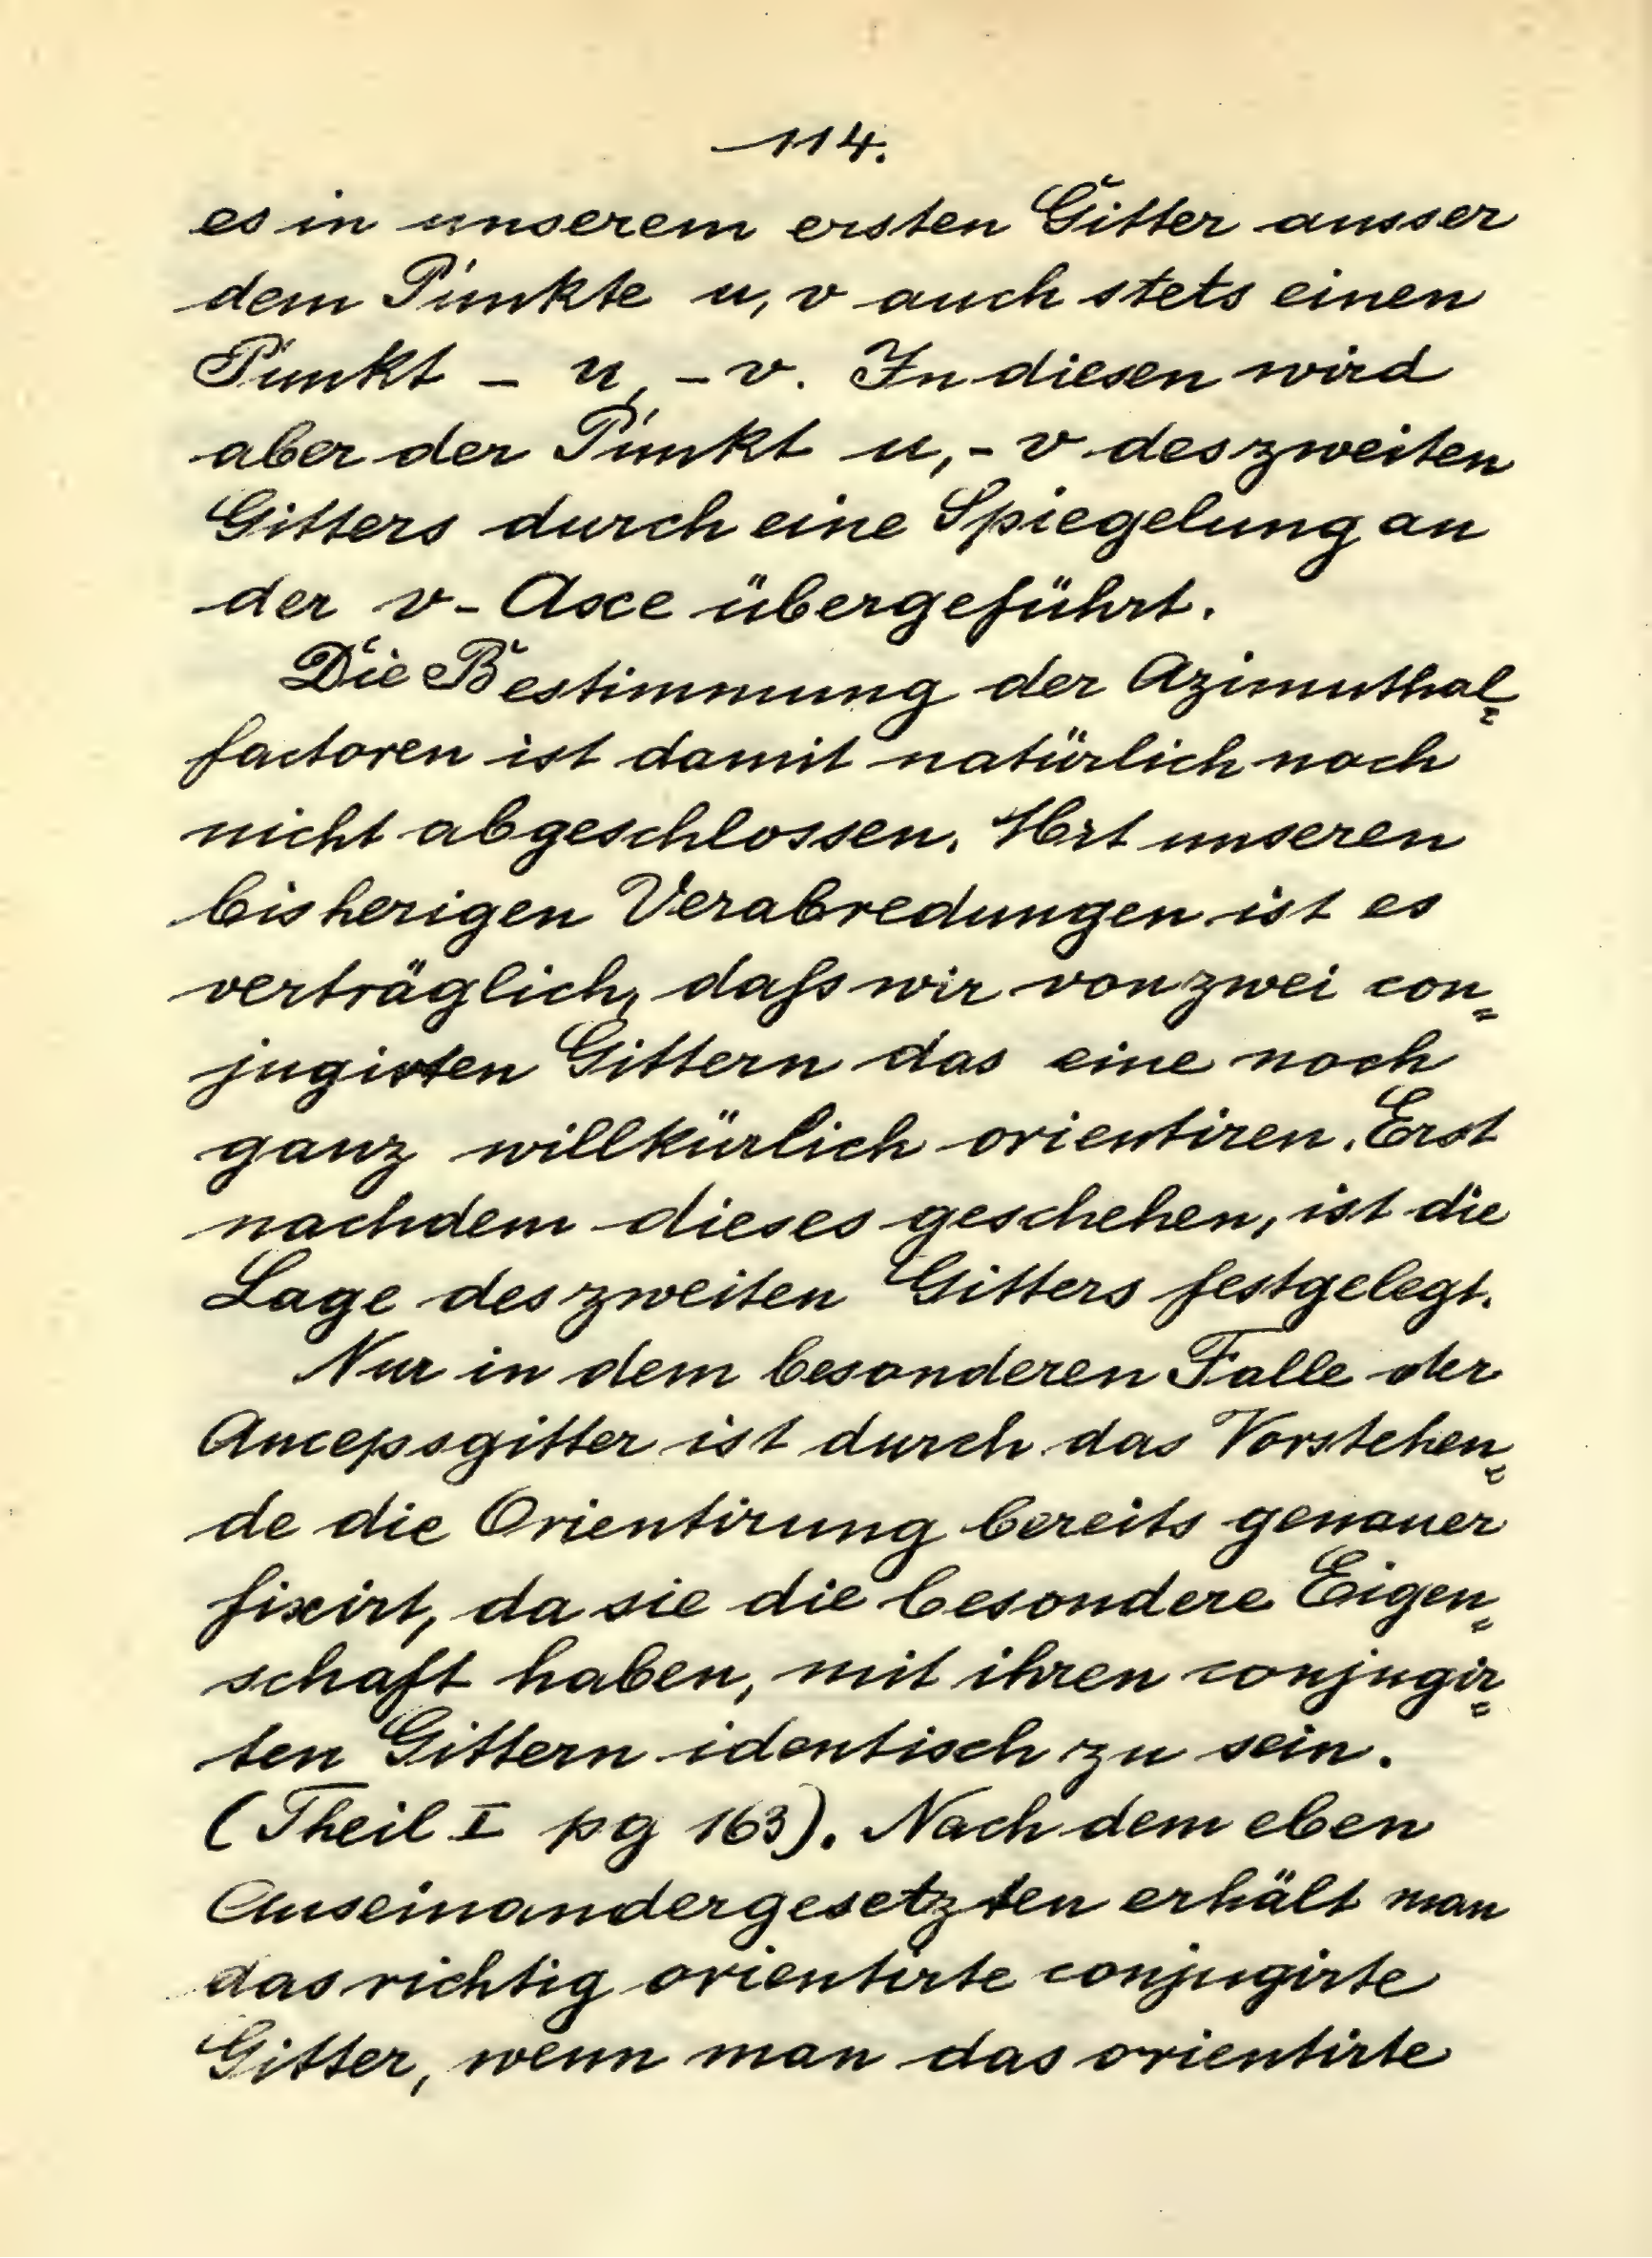 114.
es in unserem ersten Gitter ausser
dem Punkte u, v auch stets einen
Punkt - u, - v. In diesen wird
aber der Punkt u, - v des zweiten
Gitters durch eine Spiegelung an
der v - Axe übergeführt.
Die Bestimmung der Azimuthal=
factoren ist damit natürlich noch
nicht abgeschlossen. Mit unseren
bisherigen Verabredungen ist es
verträglich, daſs wir von zwei con=
jugirten Gittern das eine noch
ganz willkürlich orientiren. Erst
nachdem dieses geschehen, ist die
Lage des zweiten Gitters festgelegt.
Nur in dem besonderen Falle der
Ancepsgitter ist durch das Vorstehen=
de die Orientirung bereits genauer
fixirt, da sie die besondere Eigen=
schaft haben, mit ihren conjugir=
ten Gittern identisch zu sein.
(Theil I pg 163). Nach dem eben
Auseinandergesetzten erhält man
das richtig orientirte conjugirte
Gitter, wenn man das orientirte